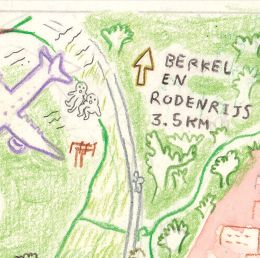 BERKEL
EN
RODENRIJS
3.5KM